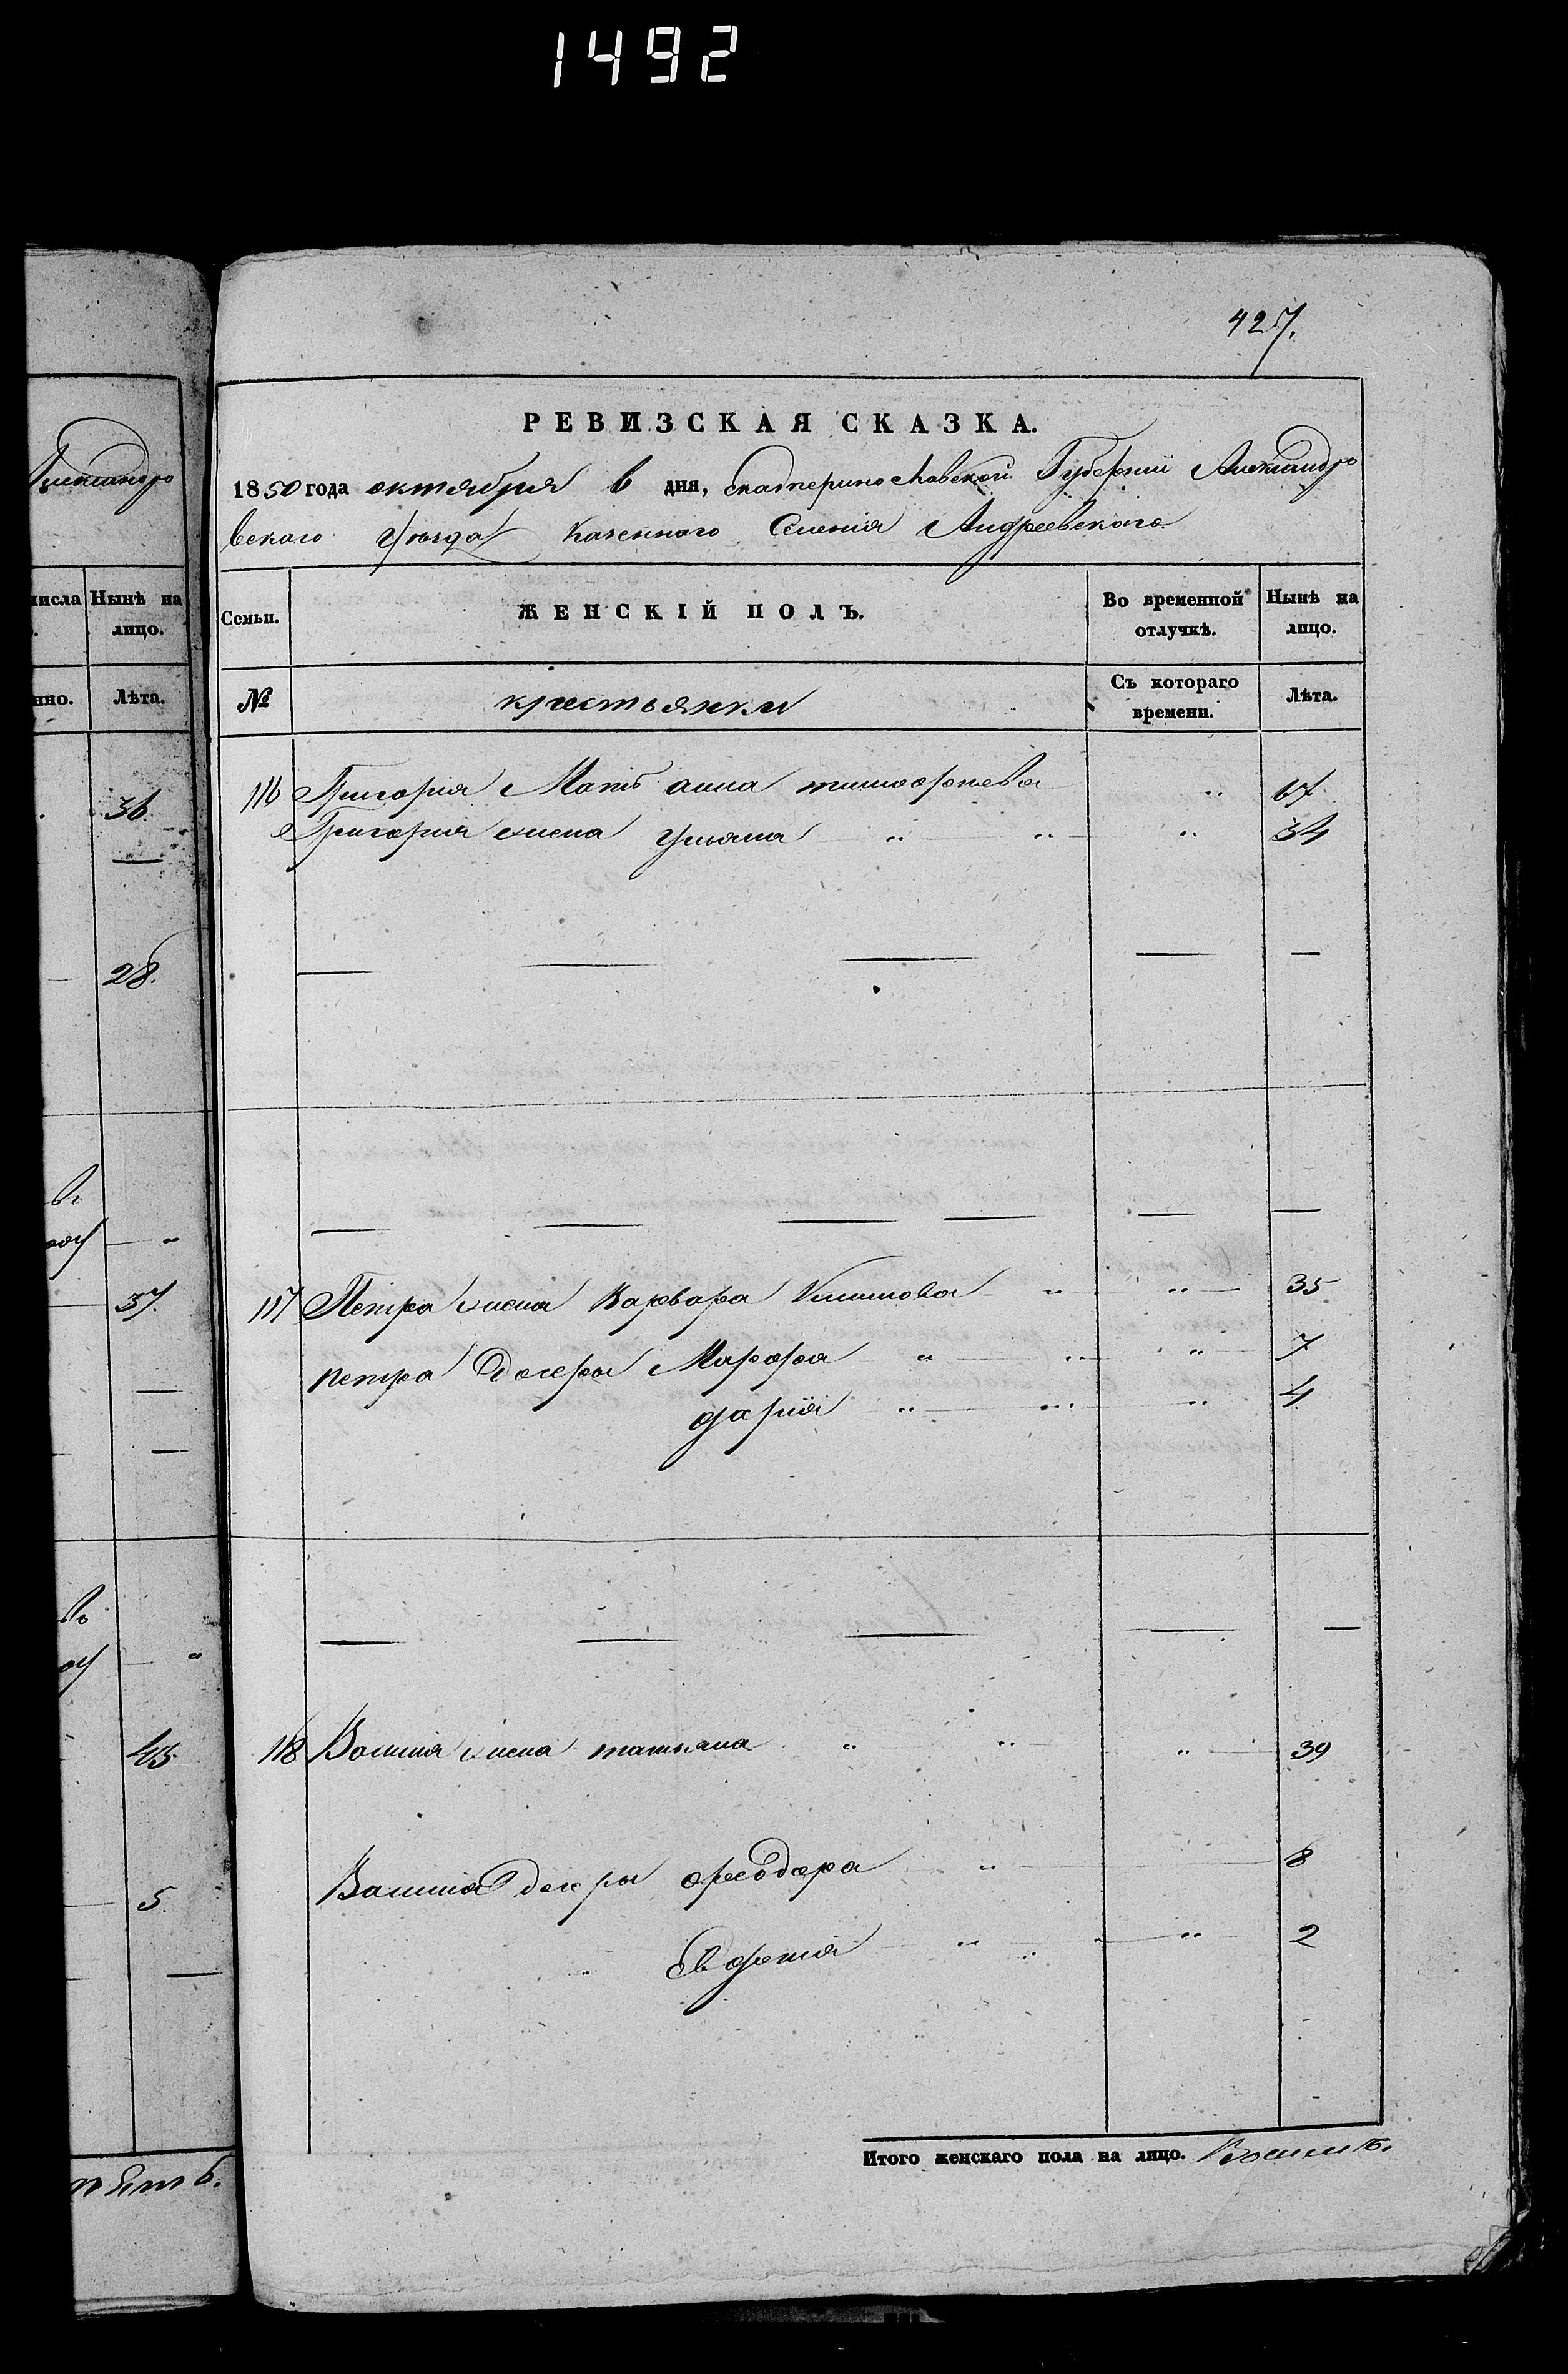 1492
427.
РЕВИЗСКАЯ СКАЗКА.
1850 года октября 6 дня, Екатеринославской Губернии Александро
вскаго уѣзда Казеннаго Селенія Андреевскаго
Семьи. ЖЕНСКІЙ ПОЛЪ. Во временной отлучкѣ. Нынѣ на лицо.
№ крестьянки Съ котораго времени. Лѣта.
116 Григорія Мать анна тимофеева " 67
Григорія жена Ульяна " " " 34
117 Петра жена Варвара Климова " " 35
петра дочеры Марфа " " " 7
дарія " " " 4
118 Василія жена татьяна " " " 39
Василія дочеры феодора " 8
Евдокія " " " 2
Итого женскаго пола на лицо. Восемь.
Александро
числа Нынѣ на
лицо.
нно. Лѣта.
36
28.
37.
43
5.
пять.